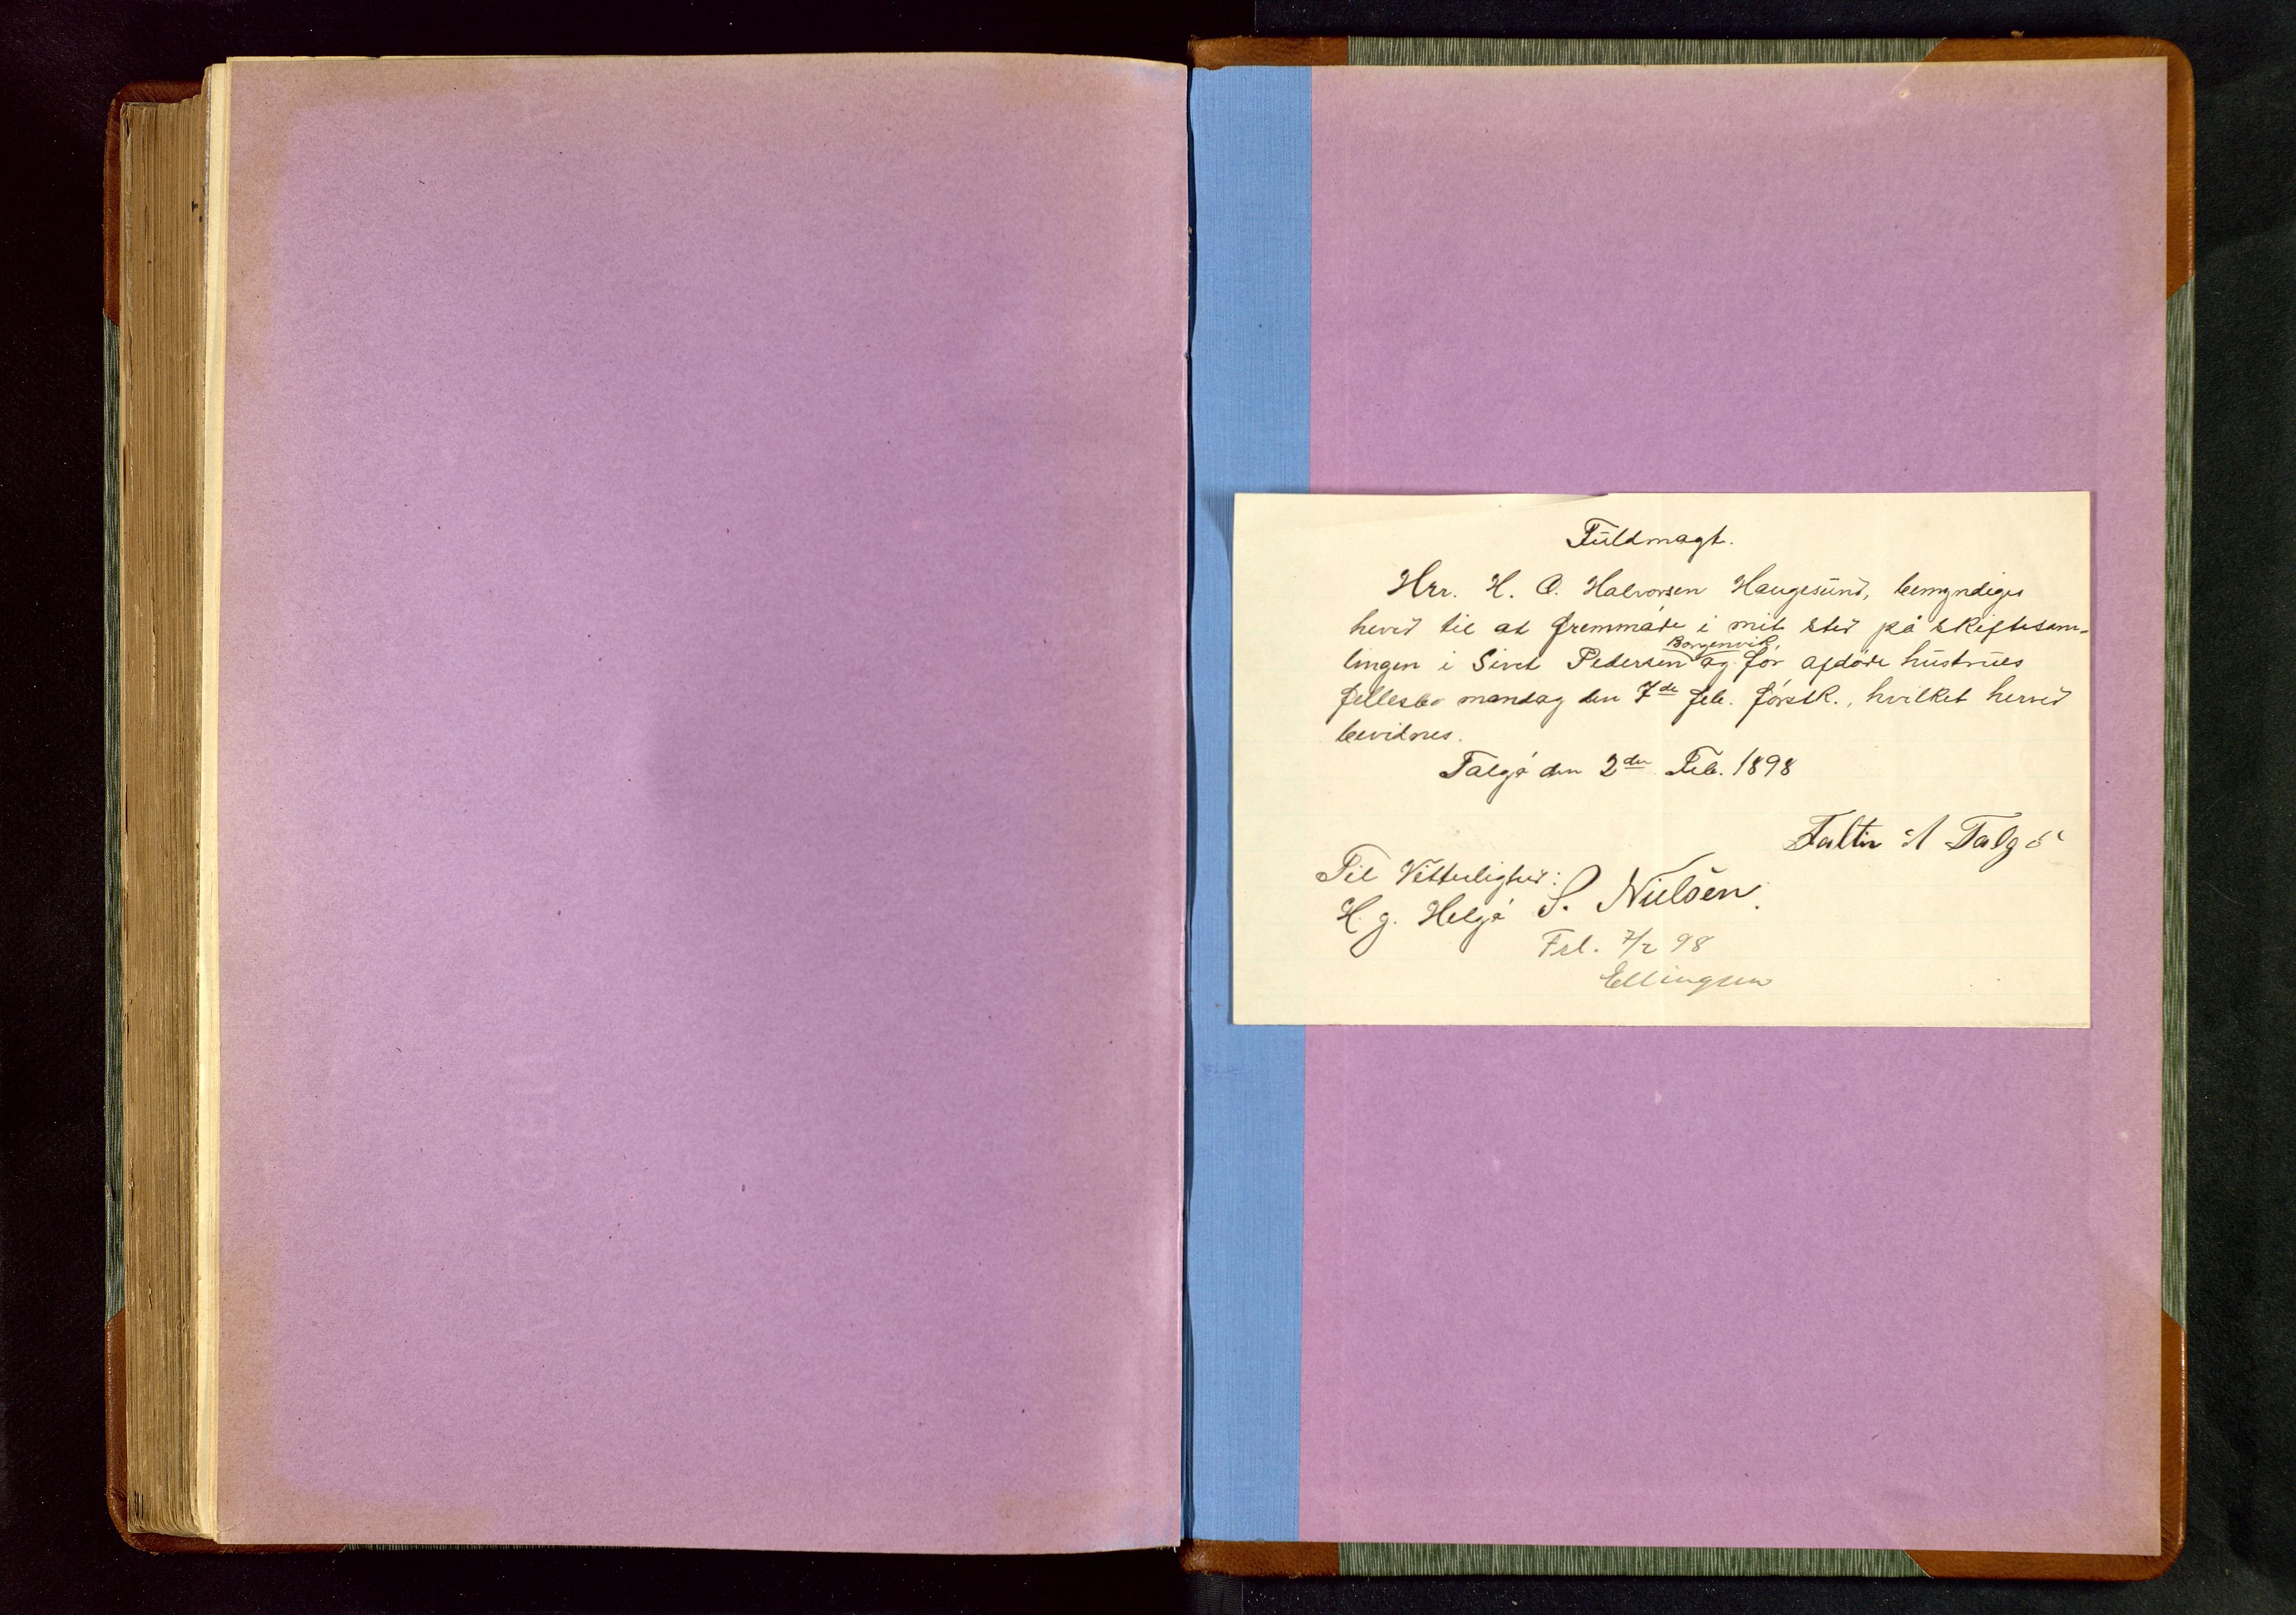 Fuldmagt.
Hrr. H. O. Halvorsen Haugesund, bemyndiges
herved til at fremmøde i mit sted på skiftesam-
lingen i Sivet Pedersen Borgenvik og for afdøde hustrues
fellesbo mandag den 7de feb. førstk., hvilket herved
bevidnes.
Talgø den 2den Feb. 1898
Faltin A Talgø
Til Vitterlighed:
H. g. Helgø S. Nielsen.
Frl. 7/2 98
Ellingsen